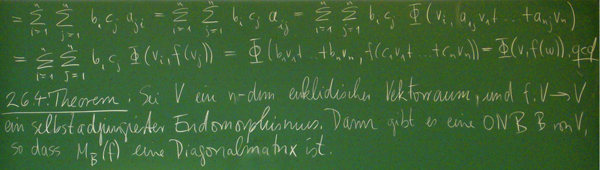 = Σ_{i=1}^{n} Σ_{j=1}^{n} b_i c_j a_{ji} = Σ_{i=1}^{n} Σ_{j=1}^{n} b_i c_j a_{ij} = Σ_{i=1}^{n} Σ_{j=1}^{n} b_i c_j Φ(v_i, a_{1j}v_1+...+a_{nj}v_n)
= Σ_{i=1}^{n} Σ_{j=1}^{n} b_i c_j Φ(v_i, f(v_j)) = Φ(b_1v_1+...+b_nv_n, f(c_1v_1+...+c_nv_n)) = Φ(v, f(w)). qed
26.4. Theorem. Sei V ein n-dim euklidischer Vektorraum, und f: V → V
ein selbstadjungierter Endomorphismus. Dann gibt es eine ONB B von V,
so dass M_B(f) eine Diagonalmatrix ist.